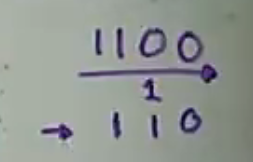 1100
1
→ 110